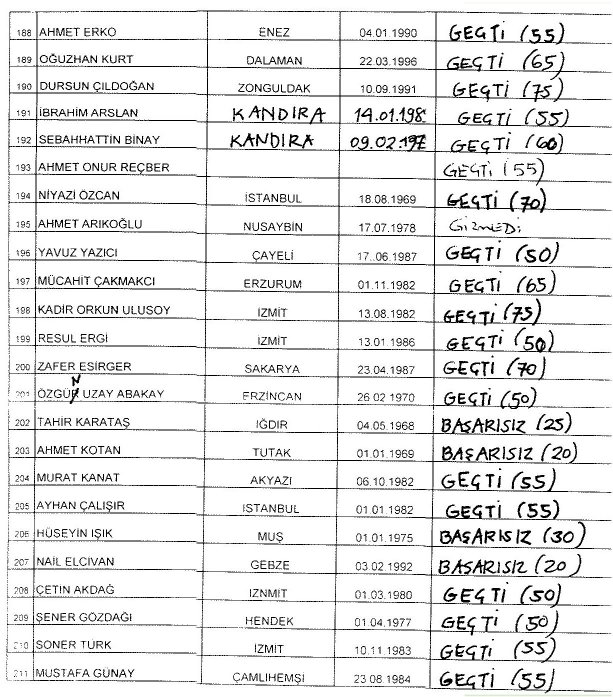 188 AHMET ERKO ENEZ 04.01.1990 GEÇTİ (55)
189 OĞUZHAN KURT DALAMAN 22.03.1996 GEÇTİ (65)
190 DURSUN ÇILDOĞAN ZONGULDAK 10.09.1991 GEÇTİ (75)
191 İBRAHİM ARSLAN KANDIRA 14.01.198 GEÇTİ (55)
192 SEBAHHATTİN BİNAY KANDIRA 09.02.197 GEÇTİ (60)
193 AHMET ONUR REÇBER GEÇTİ (55)
194 NİYAZİ ÖZCAN İSTANBUL 18.08.1969 GEÇTİ (70)
195 AHMET ARIKOĞLU NUSAYBİN 17.07.1978 GİRMEDİ
196 YAVUZ YAZICI ÇAYELİ 17..06.1987 GEÇTİ (50)
197 MÜCAHİT ÇAKMAKCI ERZURUM 01.11.1982 GEÇTİ (65)
198 KADİR ORKUN ULUSOY İZMİT 13.08.1982 GEÇTİ (75)
199 RESUL ERGİ İZMİT 13.01.1986 GEÇTİ (50)
200 ZAFER ESİRGER SAKARYA 23.04.1987 GEÇTİ (70)
201 ÖZGÜN UZAY ABAKAY ERZİNCAN 26.02.1970 GEÇTİ (50)
202 TAHİR KARATAŞ IĞDIR 04.05.1968 BAŞARISIZ (25)
203 AHMET KOTAN TUTAK 01.01.1969 BAŞARISIZ (20)
204 MURAT KANAT AKYAZI 06.10.1982 GEÇTİ (55)
205 AYHAN ÇALIŞIR İSTANBUL 01.01.1982 GEÇTİ (55)
206 HÜSEYİN IŞIK MUŞ 01.01.1975 BAŞARISIZ (30)
207 NAİL ELCİVAN GEBZE 03.02.1992 BAŞARISIZ (20)
208 ÇETİN AKDAĞ İZNMİT 01.03.1980 GEÇTİ (50)
209 ŞENER GÖZDAĞI HENDEK 01.04.1977 GEÇTİ (50)
210 SONER TÜRK İZMİT 10.11.1983 GEÇTİ (55)
211 MUSTAFA GÜNAY ÇAMLIHEMŞİ 23.08.1984 GEÇTİ (55)